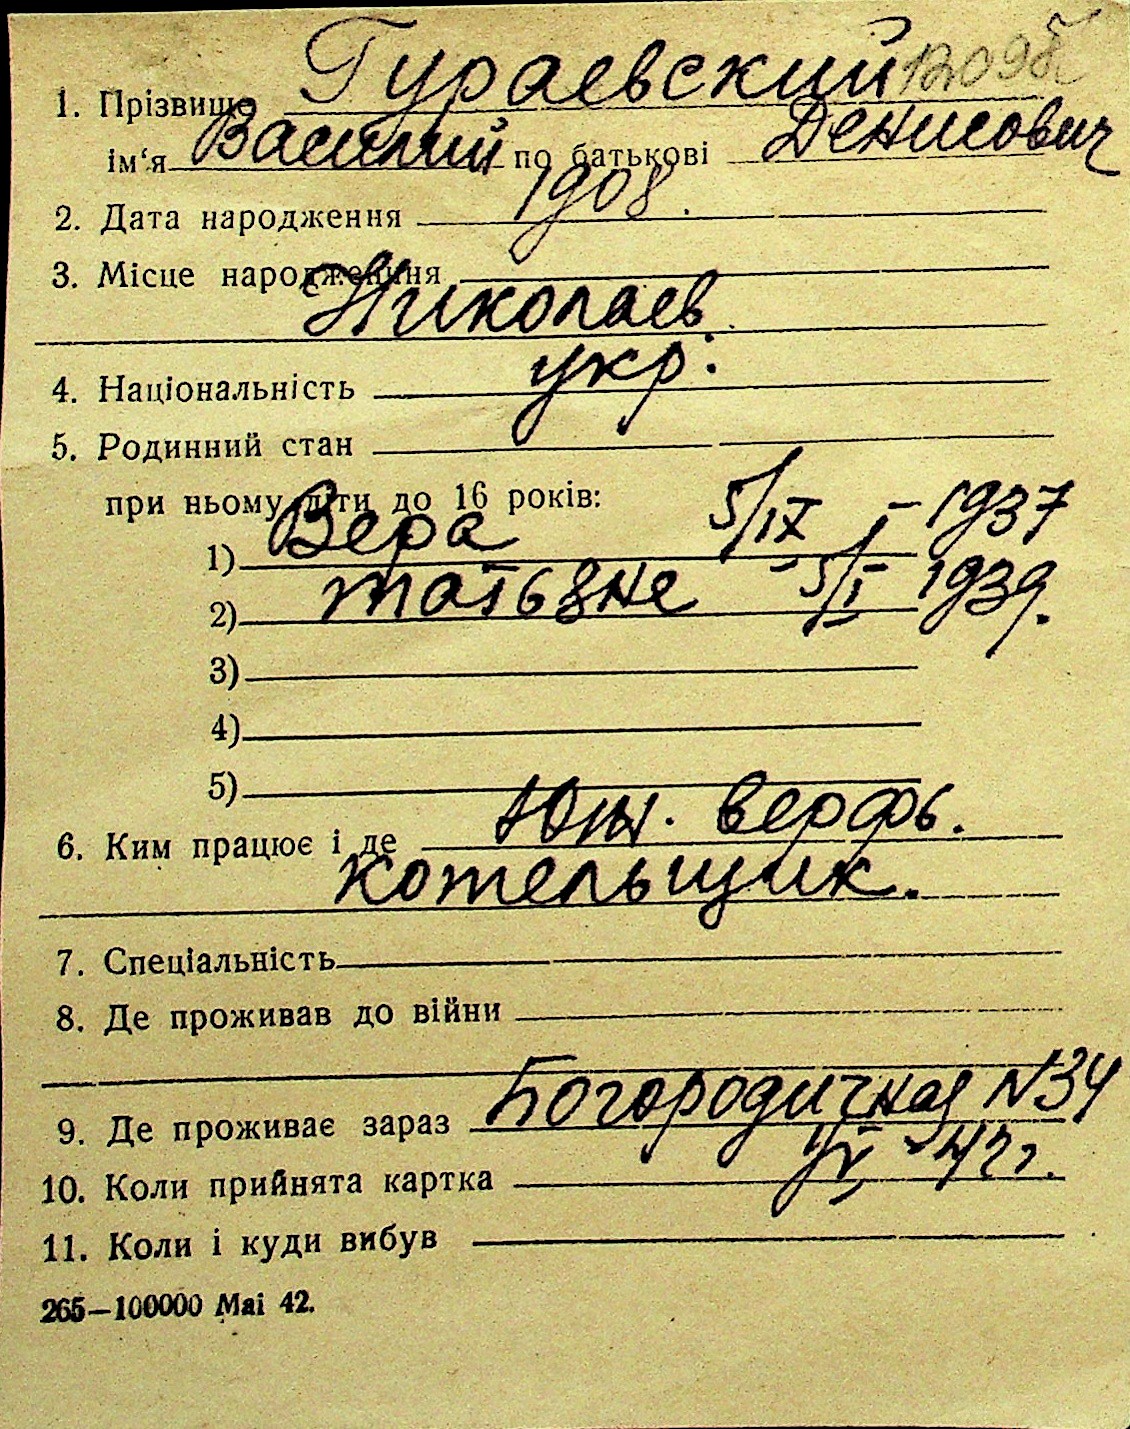 1. Прізвище Гураевский 12095
ім‘я Василий по батькові Денисович
2. Дата народження 1908.
3. Місце народження
Николаев
4. Національність укр.
5. Родинний стан
при ньому діти до 16 років:
1) Вера 5/IX – 1937
2) Татьяне 5/I 1939.
3)
4)
5)
6. Ким працює і де Юж. верфь.
котельщик.
7. Спеціальність
8. Де проживав до війни
9. Де проживає зараз Богородичная N 34
10. Коли прийнята картка – 42 г.
11. Коли і куди вибув
265—100000 Mai 42.